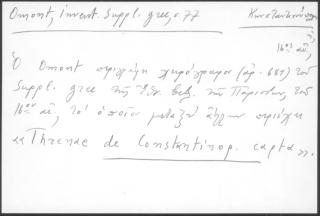 Omont, invent. Suppl. grec, σ. 77
16ος αἰ.
Ὁ Omont περιγράφει χειρόγραφον (ἀρ. 681) τοῦ
Suppl. grec τῆς Ἐθν. Βιβλ. τῶν Παρισίων, τοῦ
16ου αἰ., τὸ ὁποῖον μεταξὺ ἄλλων περιέχει
«Threnae de Constantinop. capta».